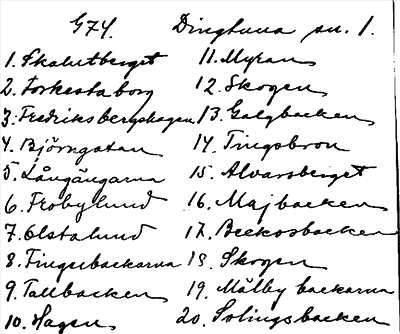 G74. Dingtuna sn. 1.
1. Skalutberget
2. Forkesta borg
3. Fredriksbergshagen
4. Björngatan
5. Långängarna
6. Frobylund
7. Olstalund
8. Tingsebackarna
9. Tallbacken
10. Hagen
11. Myran
12. Skogen
13. Galgbacken
14. Tingsbron
15. Alvarsberget
16. Majbacken
17. Beckosbacken
18. Skogen
19. Mälby backarna
20. Solingsbacken